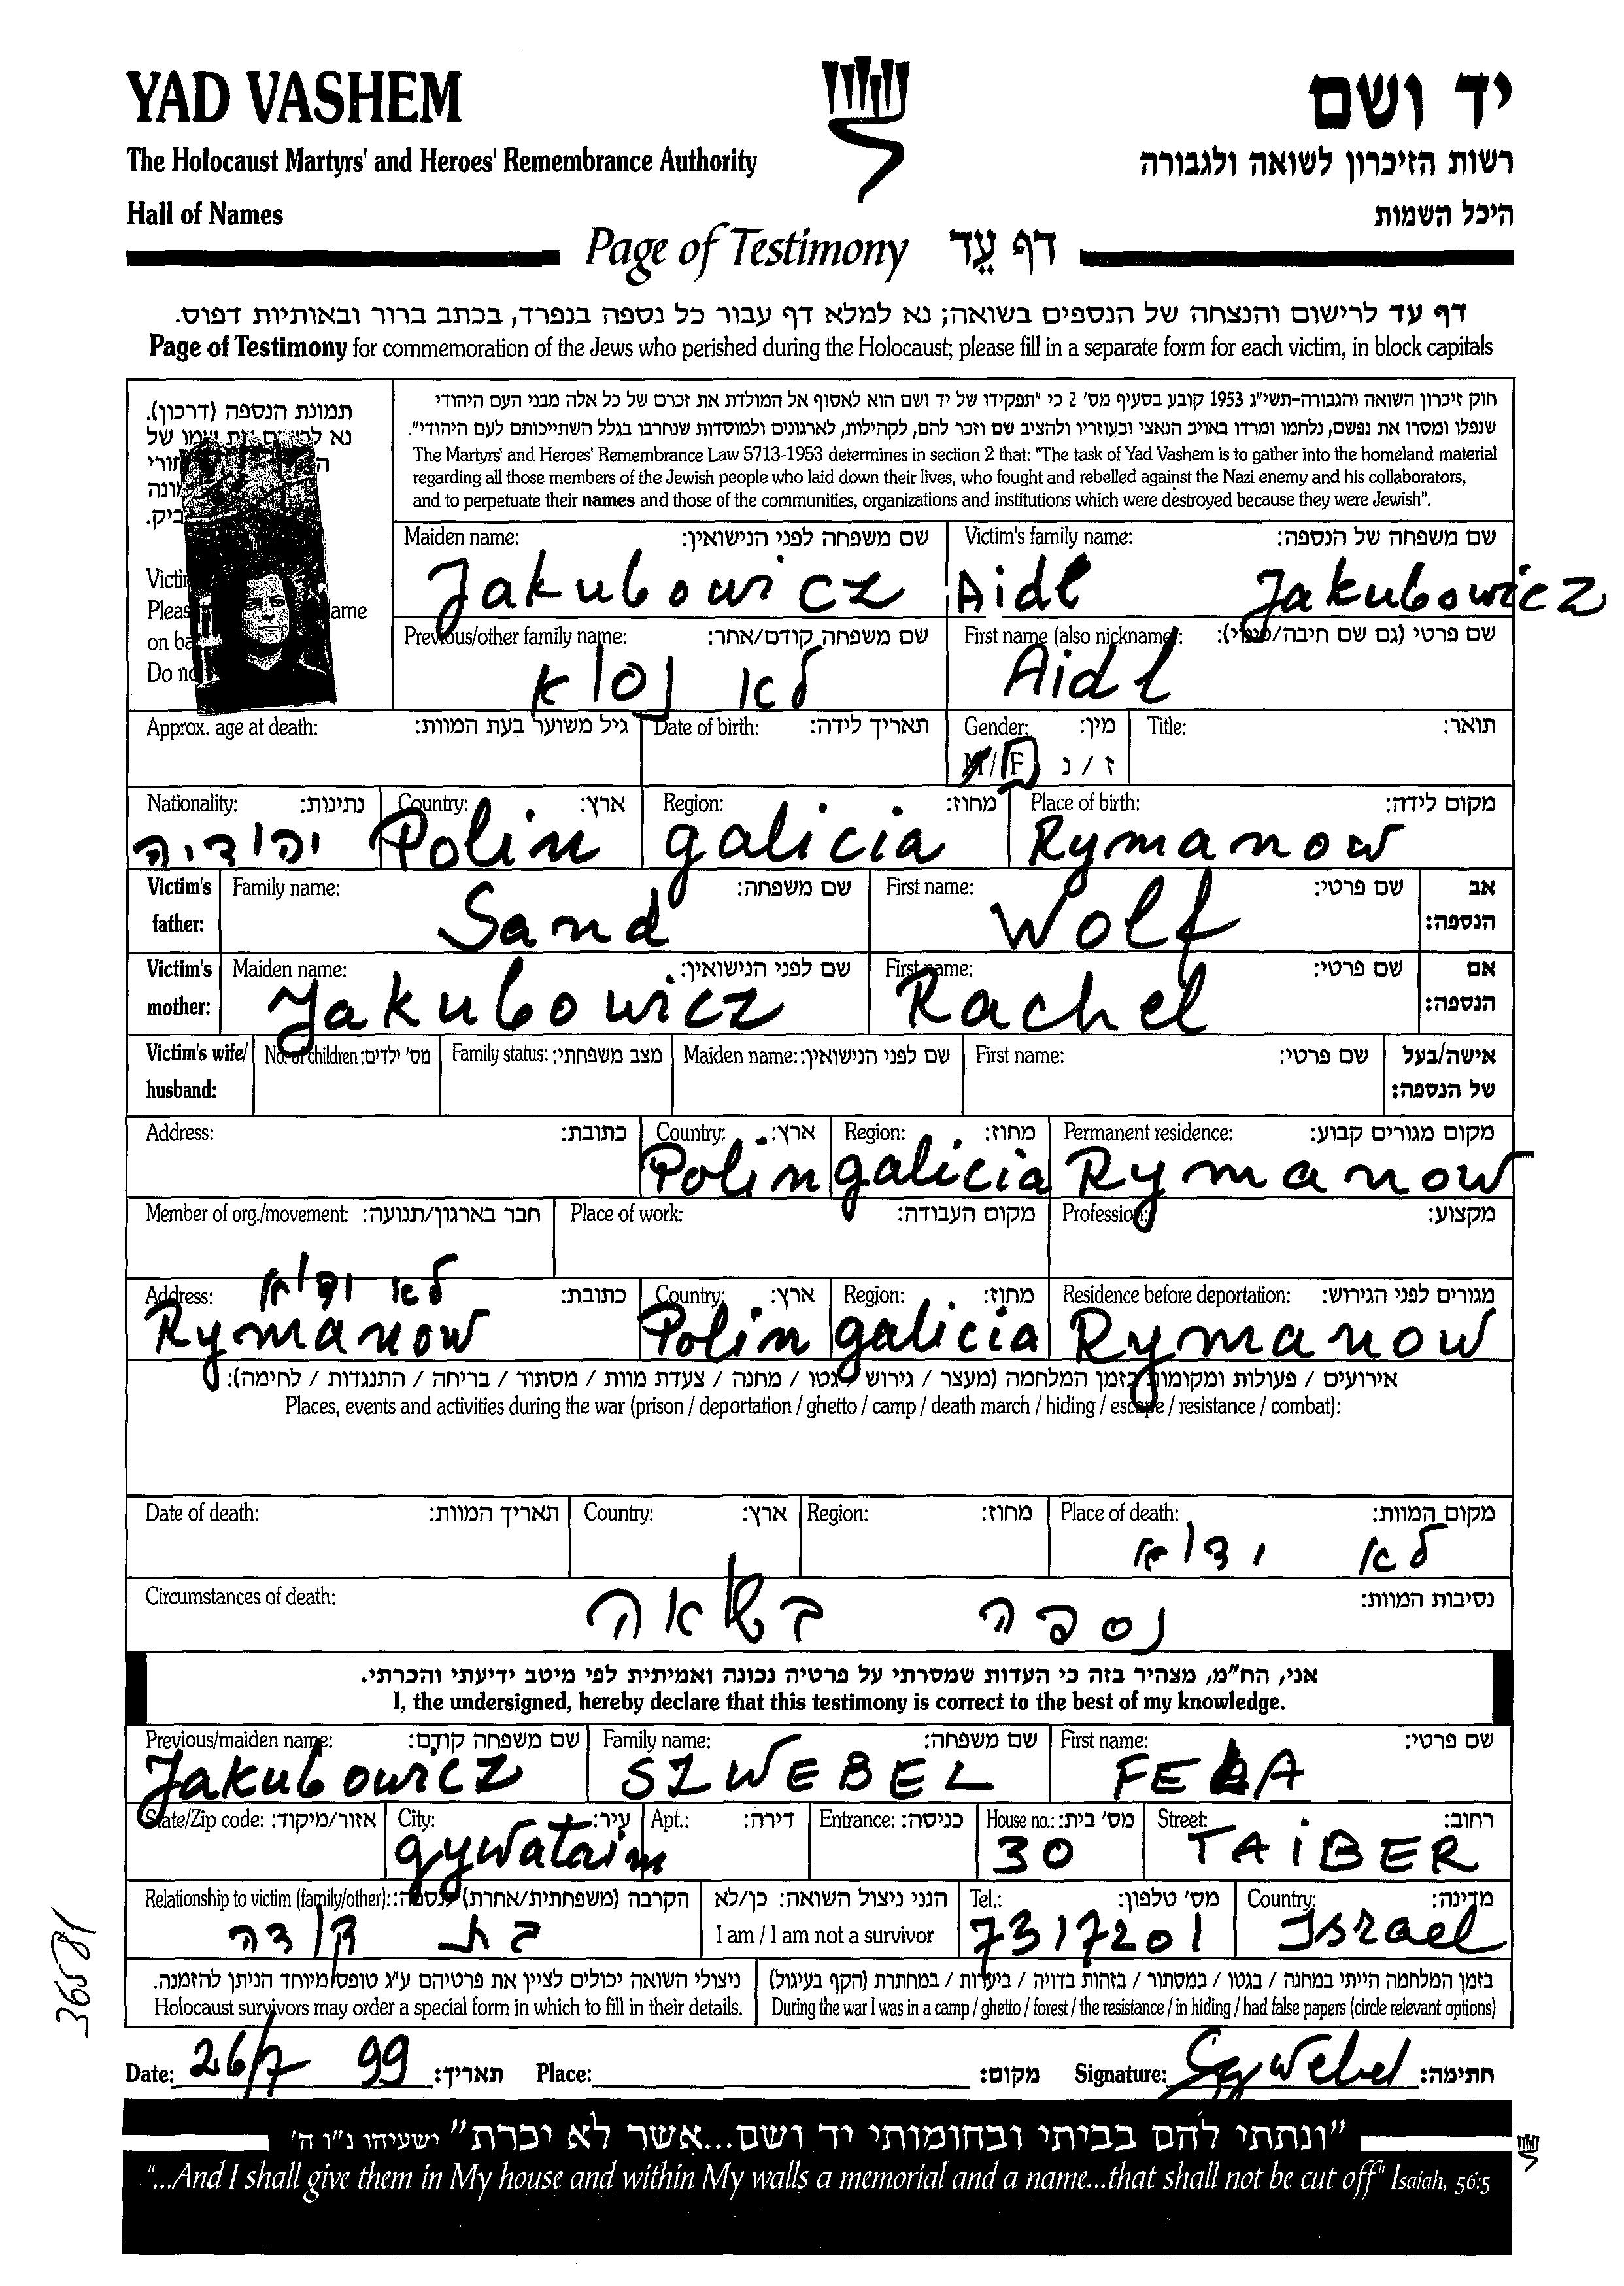 YAD VASHEM
יד ושם
The Holocaust Martyrs' and Heroes' Remembrance Authority
רשות הזיכרון לשואה ולגבורה
Hall of Names
היכל השמות
Page of Testimony דף עֵד
דף עד לרישום והנצחה של הנספים בשואה; נא למלא דף עבור כל נספה בנפרד, בכתב ברור ובאותיות דפוס.
Page of Testimony for commemoration of the Jews who perished during the Holocaust; please fill in a separate form for each victim, in block capitals
תמונת הנספה (דרכון).
חוק זיכרון השואה והגבורה-תשי"ג 1953 קובע בסעיף מס' 2 כי "תפקידו של יד ושם הוא לאסוף אל המולדת את זכרם של כל אלה מבני העם היהודי
שנפלו ומסרו את נפשם, נלחמו ומרדו באויב הנאצי ובעוזריו ולהציב שם וזכר להם, לקהילות, לארגונים ולמוסדות שנחרבו בגלל השתייכותם לעם היהודי".
The Martyrs' and Heroes' Remembrance Law 5713-1953 determines in section 2 that: "The task of Yad Vashem is to gather into the homeland material
regarding all those members of the Jewish people who laid down their lives, who fought and rebelled against the Nazi enemy and his collaborators,
and to perpetuate their names and those of the communities, organizations and institutions which were destroyed because they were Jewish".
Maiden name: שם משפחה לפני הנישואין:
Jakubowicz
Victim's family name: שם משפחה של הנספה:
Aidl Jakubowicz
Previous/other family name: שם משפחה קודם/אחר:
לא
First name (also nickname): שם פרטי (גם שם חיבה/
Aidl
Approx. age at death: גיל משוער בעת המוות:
Date of birth: תאריך לידה:
Gender: מין:
M / F ז / נ
Title: תואר:
Nationality: נתינות:
יהודיה
Country: ארץ:
Polin
Region: מחוז:
galicia
Place of birth: מקום לידה:
Rymanow
Victim's father: Family name: שם משפחה:
Sand
First name: שם פרטי:
Wolf
אב הנספה:
Victim's mother: Maiden name: שם לפני הנישואין:
Jakubowicz
First name: שם פרטי:
Rachel
אם הנספה:
Victim's wife/ husband: No. of children: מס' ילדים: Family status: מצב משפחתי: Maiden name: שם לפני הנישואין: First name: שם פרטי:
אישה/בעל של הנספה:
Address: כתובת:
Country: ארץ:
Polin
Region: מחוז:
galicia
Permanent residence: מקום מגורים קבוע:
Rymanow
Member of org./movement: חבר בארגון/תנועה: Place of work: מקום העבודה: Profession: מקצוע:
לא
Address: כתובת:
Rymanow
Country: ארץ:
Polin
Region: מחוז:
galicia
Residence before deportation: מגורים לפני הגירוש:
Rymanow
אירועים / פעולות ומקומות בזמן המלחמה (מעצר / גירוש / גטו / מחנה / צעדת מוות / מסתור / בריחה / התנגדות / לחימה):
Places, events and activities during the war (prison / deportation / ghetto / camp / death march / hiding / escape / resistance / combat):
Date of death: תאריך המוות: Country: ארץ: Region: מחוז: Place of death: מקום המוות:
לא
Circumstances of death: נסיבות המוות:
נספה בשאה
אני, הח"מ, מצהיר בזה כי העדות שמסרתי על פרטיה נכונה ואמיתית לפי מיטב ידיעתי והכרתי.
I, the undersigned, hereby declare that this testimony is correct to the best of my knowledge.
Previous/maiden name: שם משפחה קודם:
Jakubowicz
Family name: שם משפחה:
SZWEBEL
First name: שם פרטי:
State/Zip code: אזור/מיקוד:
City: עיר:
gywataim
Apt.: דירה: Entrance: כניסה:
House no.: מס' בית:
30
Street: רחוב:
TAIBER
Relationship to victim (family/other): הקרבה (משפחתית/אחרת)
בת דודה
הנני ניצול השואה: כן/לא
I am / I am not a survivor
Tel.: מס' טלפון:
7317201
Country: מדינה:
Israel
ניצולי השואה יכולים לציין את פרטיהם ע"ג טופס מיוחד הניתן להזמנה.
Holocaust survivors may order a special form in which to fill in their details.
בזמן המלחמה הייתי במחנה / בגטו / במסתור / בזהות בדויה / ביערות / במחתרת (הקף בעיגול)
During the war I was in a camp / ghetto / forest / the resistance / in hiding / had false papers (circle relevant options)
36581
Date: 26/7 99 תאריך: Place: מקום: Signature: Szwebel חתימה:
"ונתתי להם בביתי ובחומותי יד ושם...אשר לא יכרת" ישעיהו נ"ו ה'
"...And I shall give them in My house and within My walls a memorial and a name...that shall not be cut off" Isaiah, 56:5